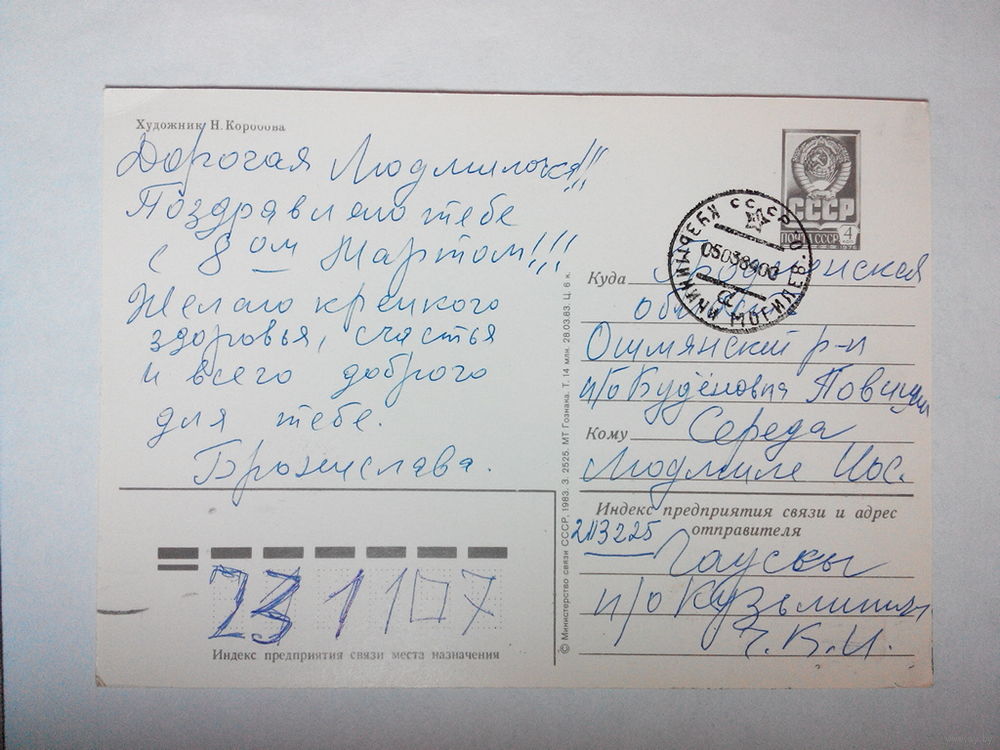 Художник Н. Коробова
Дорогая Людмилочка!!!
Поздравляю тебе
с 8ом Мартом!!!
Желаю крепкого
здоровья, счастья
и всего доброго
для тебе.
Бронислава.
СССР
ПОЧТА СССР 4
КУЗЬМИНИЧИ МОГИЛЕВ
Куда Гродненская
область
Ошмянский р-н
п/о Будёновка
Кому Середа
Людмиле Иос.
Индекс предприятия связи и адрес
отправителя
213225
п/о Кузьминичи
Г.К.И.
231107
Индекс предприятия связи места назначения
© Министерство связи СССР, 1983. З. 2525. МТ Гознака. Т. 14 млн. 28.03.83. Ц. 6 к.